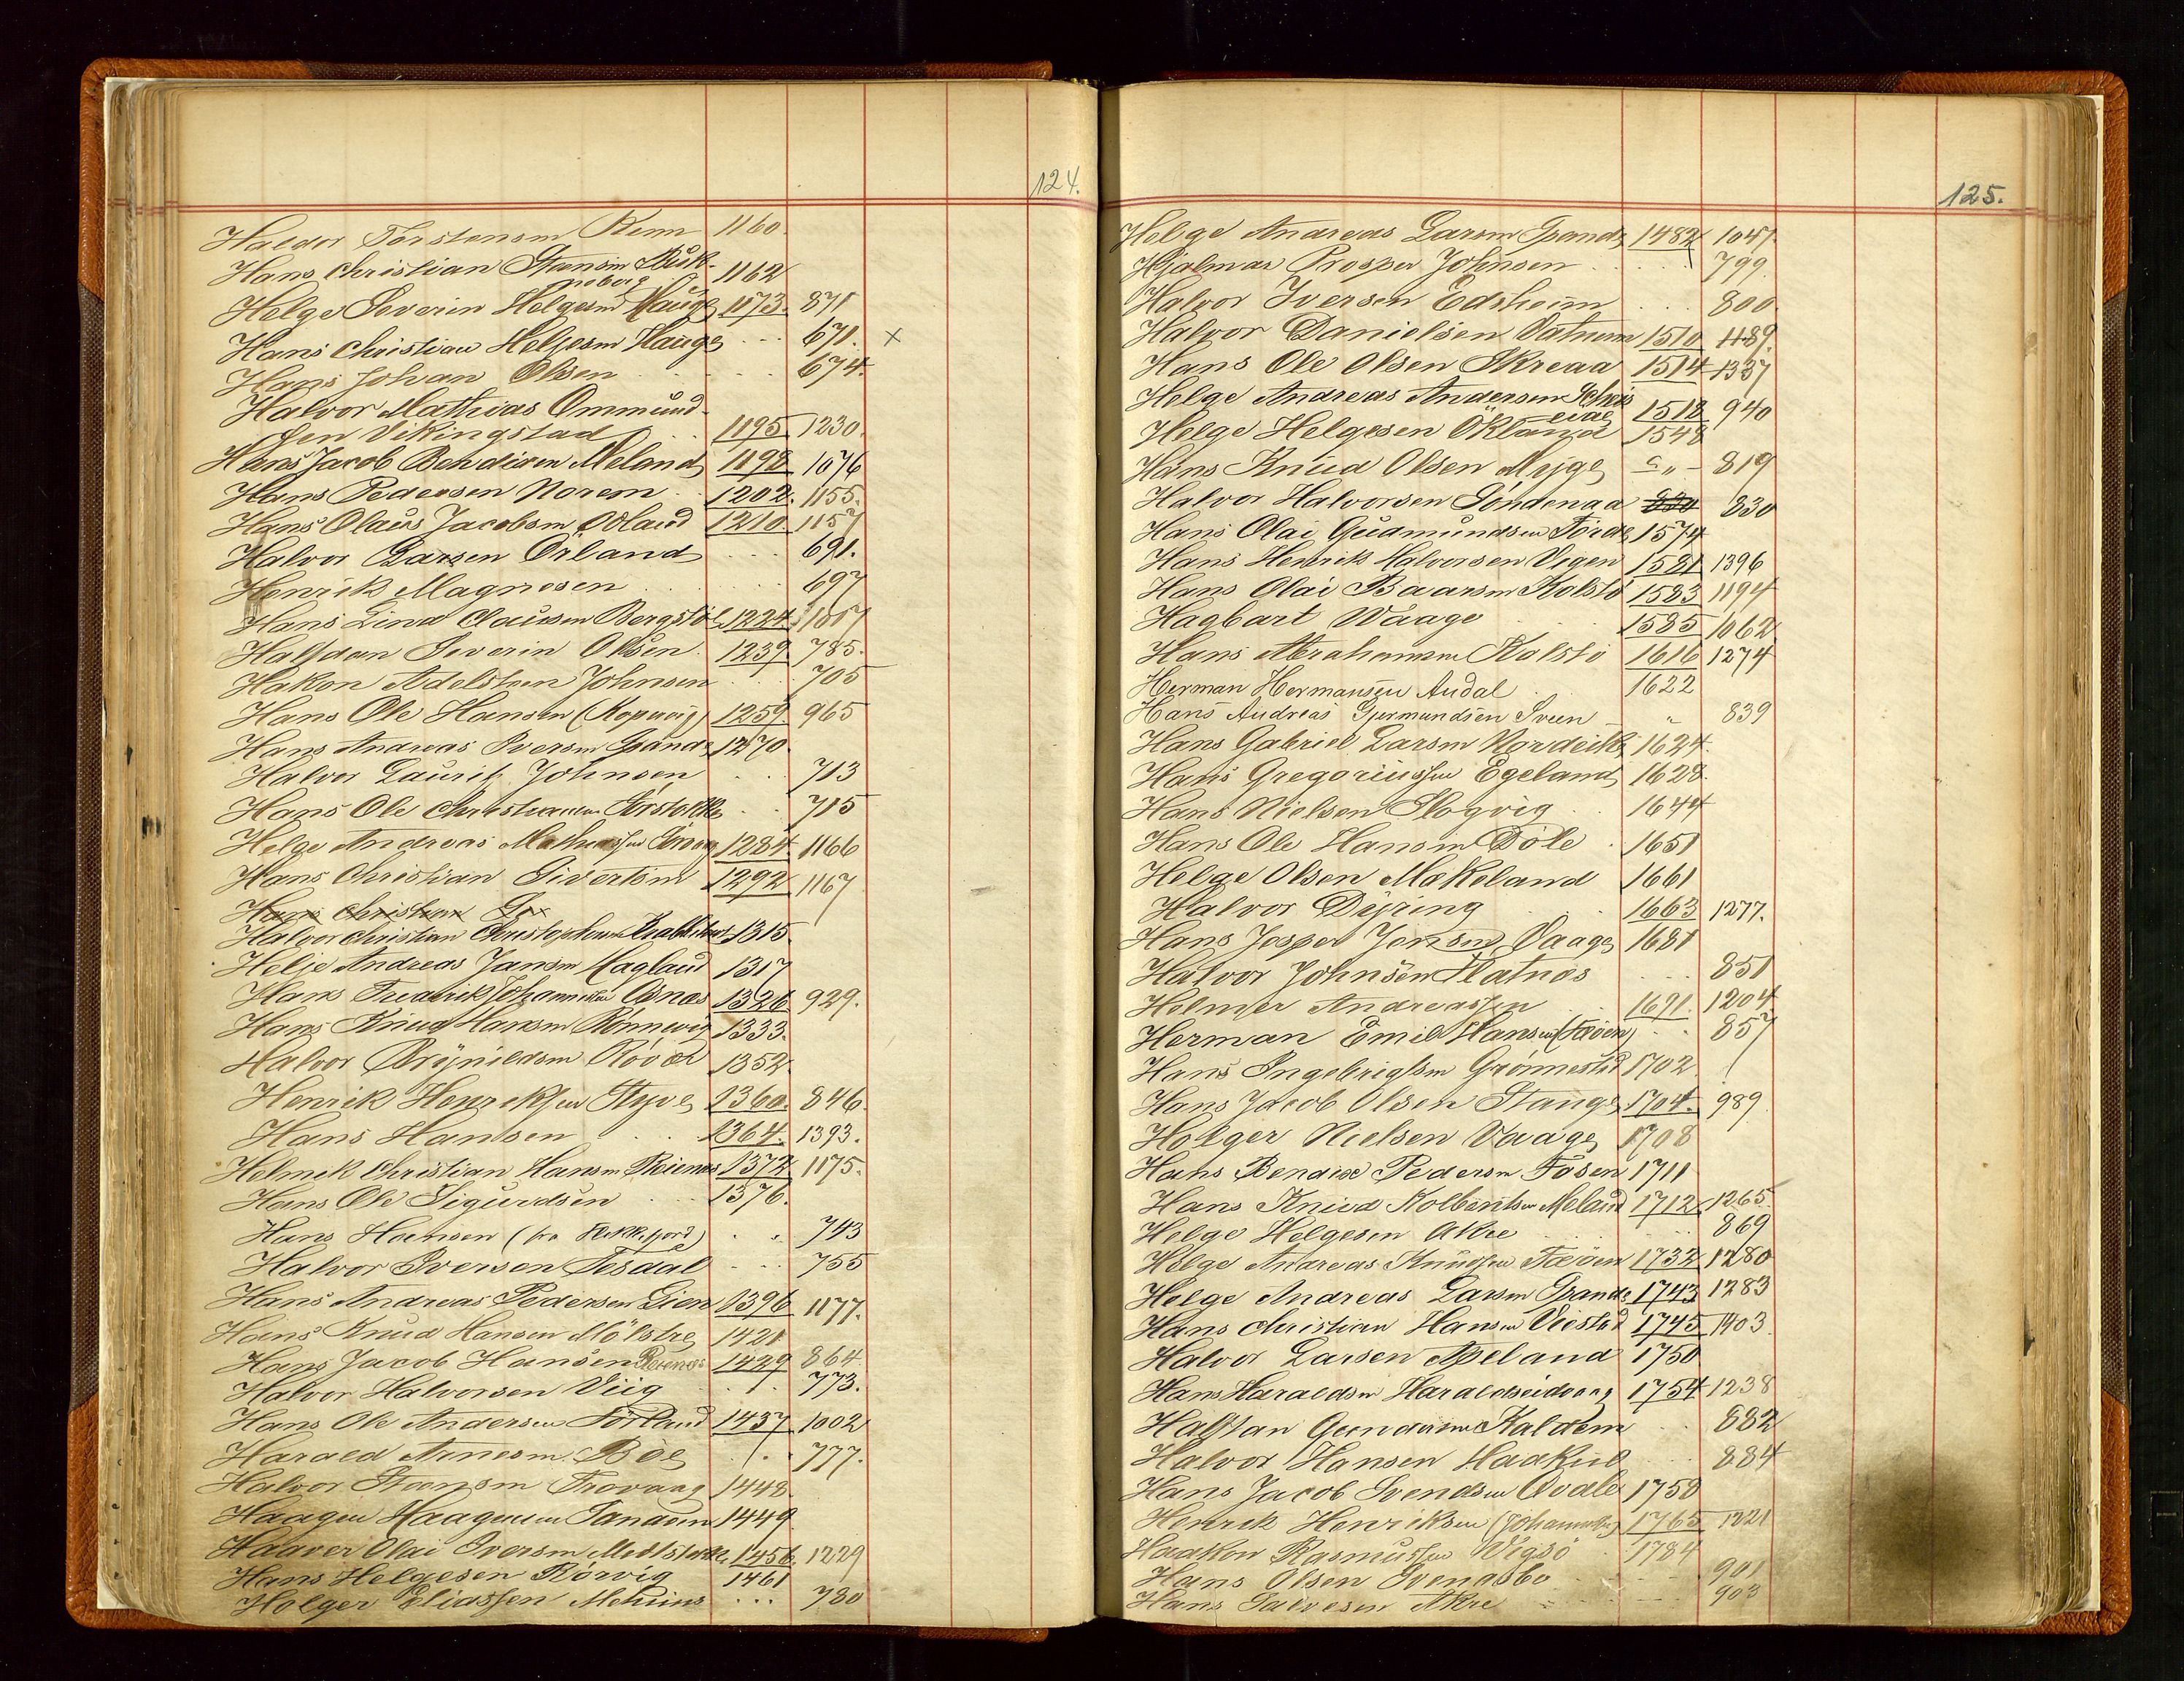 124.
Haldor Torstensen Renn 1160.
Hans Christian Steensen Buk-
neberg 1162
Helge Severin Helgesen Hauge 1173. 871
Hans Christian Helgesen Hauge - - - 671. ×
Hans Johan Olsen 674.
Halvor Mathias Ommund-
sen Vikingstad 1195 1230.
Hans Jacob Bendixen Meland 1198 1076
Hans Pedersen Norem 1202. 1155.
Hans Olaus Jacobsen Odland 1210. 1157
Halvor Larsen Örland 691.
Henrik Magnesen 697
Hans Lind Clausen Bergstöl 1224
Halfdan Severin Olsen 1239 785.
Hakon Adelsteen Johnsen 705
Hans Ole Hansen (Kopervig) 1259 965
Hans Andreas Iversen Spande 1270.
Halvor Lauritz Johnsen 713
Hans Ole Christiansen 715
Helge Andreas Mathiassen 1284. 1166
Hans Christian Sivertsen 1292 1167
Hans Christian
Halvor Christian Christophersen 1315.
Helje Andreas Jansen Hagland 1317
Hans Fredrik Johannesen Osnes 1326 929.
Hans Knud Hansen Rönnevig 1333.
Halvor Brynildsen Rövær 1352.
Henrik Henriksen Stype 1360. 846.
Hans Hansen 1364. 1393.
Helmik Christian Hansen Reienes 1372 1175.
Hans Ole Sigurdsen 1376.
Hans Hansen (fra Flekkefjord) 743
Halvor Iversen Tesdal 755
Hans Andreas Pedersen Lien 1396 1177.
Hans Knud Hansen Mölstre 1421
Hans Jacob Hansen Reienes 1429 864.
Halvor Halvorsen Viig 773.
Hans Ole AndersenFörland 1437 1002
Harald Arnesen Böe 777.
Halvor Steensen Trovaag 1448.
Haagen Haagensen Tandem 1449
Haaver Olai Iversen 1456. 1229
Hans Helgesen Rörvig 1461
Holger Eliassen Mehuus 780
125.
Helge Andreas Larsen Spande 1482 1047
Hjalmar Prosper Johnsen 799.
Halvor Iversen Edsheim 800.
Halvor Danielsen Vatnem 1510 1189.
Hans Ole Olsen Skreaa 1514 1337
Helge Andreas Andersen
1518 940
Helge Helgesen Ökland 1548
Hans Knud Olsen Myge 819
Halvor Halvorsen Söndenaa 830 830
Hans Olai Gudmundsen Förde 1574
Hans Henrik Halvorsen Vegen 1581 1396
Hans Olai Baarsen Kolstö 1583 1194
Hagbart Waage 1585 1062
Hans Abrahamsen Kolstö 1616 1274
Herman Hermansen Audal 1622
Hans Andreas Gjermundsen Sveen 839
Hans Gabriel Larsen Nordeike 1624.
Hans Gregoriussen Egeland 1628.
Hans Nielsen Slogvig 1644
Hans Ole Hansen Döle 1651
Helge Olsen Mækeland 1661
Halvor Dyring 1663 1277.
Hans Jesper Jonsen Vaage 1681
Halvor Johnsen Flatnes 851
Helmer Andreassen 1691. 1204
Herman Emil Hansen (Fæöen) 857
Hans Ingebrigtsen Grönnestad 1702
Hans Jacob Olsen Stange 1704. 989
Holger Nielsen Vaage 1708
Hans Bendix Pedersen Fosen 1711
Hans Knud Kolbentsen Meland 1712 1265
Helge Helgesen Akre 869
Helge Andreas Knudsen Fæöen 1732 1280
Helge Andreas Larsen Spande 1743 1283
Hans Christian Hansen Viestad 1745 1403
Halvor Larsen Apeland 1750
Hans Haraldsen Haraldseidvaag 1754 1238
Halftan Gundersen Kaldem 882
Halvor Hansen 884
Hans Jacob Svendsen Qvale 1758
Henrik Henriksen 1765 1221
Haakon Rasmussen Vigsö 1784
Hans Olsen Svendsbö 901
Hans Salvesen Akre 903